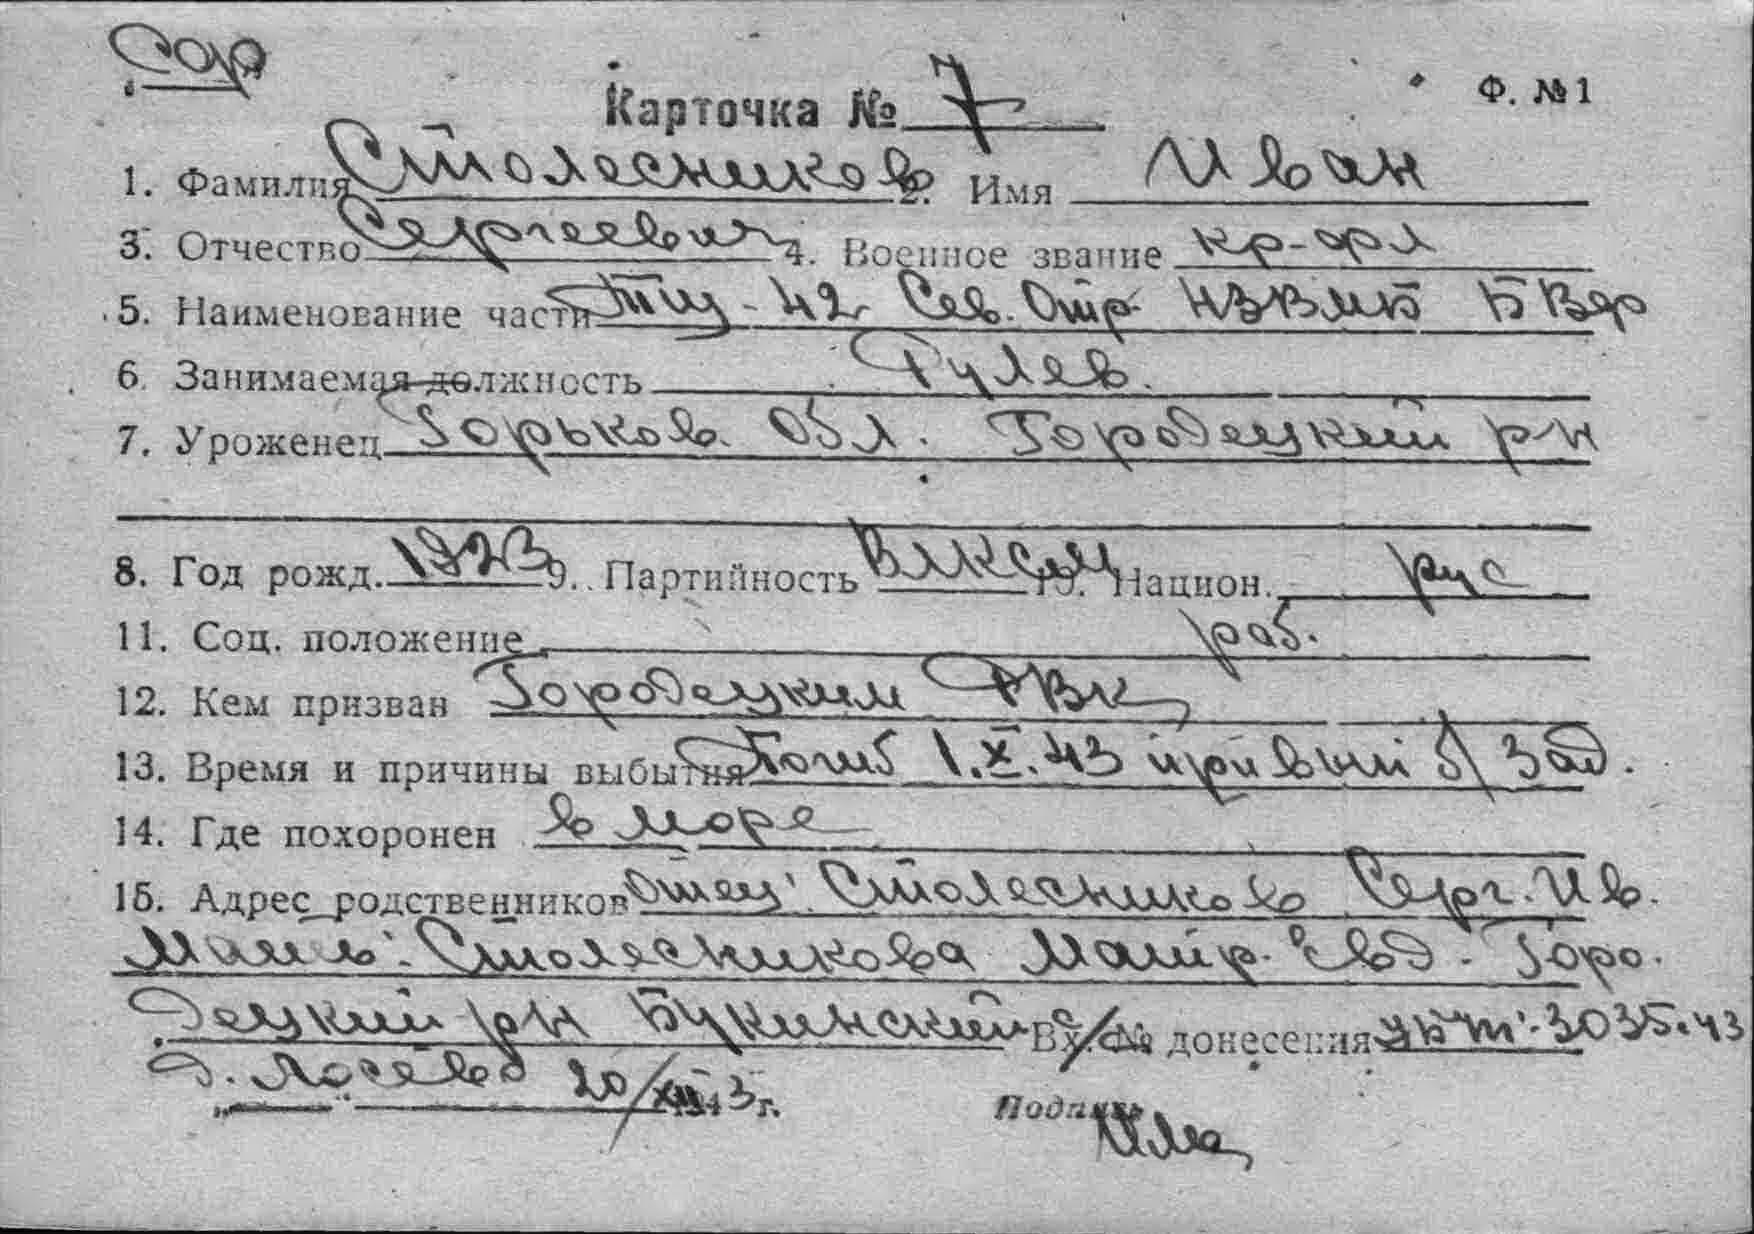 Карточка № 7 Ф. № 1
1. Фамилия Столесников 2. Имя Иван
3. Отчество Сергеевич 4. Военное звание кр-фл
5. Наименование части ТЩ-42 Сев. Отр. НЗВМБ
6. Занимаемая должность Рулев.
7. Уроженец Горьков. Обл. Городецкий р-н
8. Год рожд. 1923 9. Партийность ВЛКСМ 10. Национ. рус
11. Соц. положение раб.
12. Кем призван Городецким РВК
13. Время и причины выбытия Погиб 1.X.43 при вып б/зад.
14. Где похоронен в море
15. Адрес родственников Отец: Столесников Серг. Ив.
Мать: Столесникова Матр. Евд. Горо-
децкий р-н Букинский с/с Вх. № донесения 3035.43
д. Лосево 20/XII 1943 г. Подпись